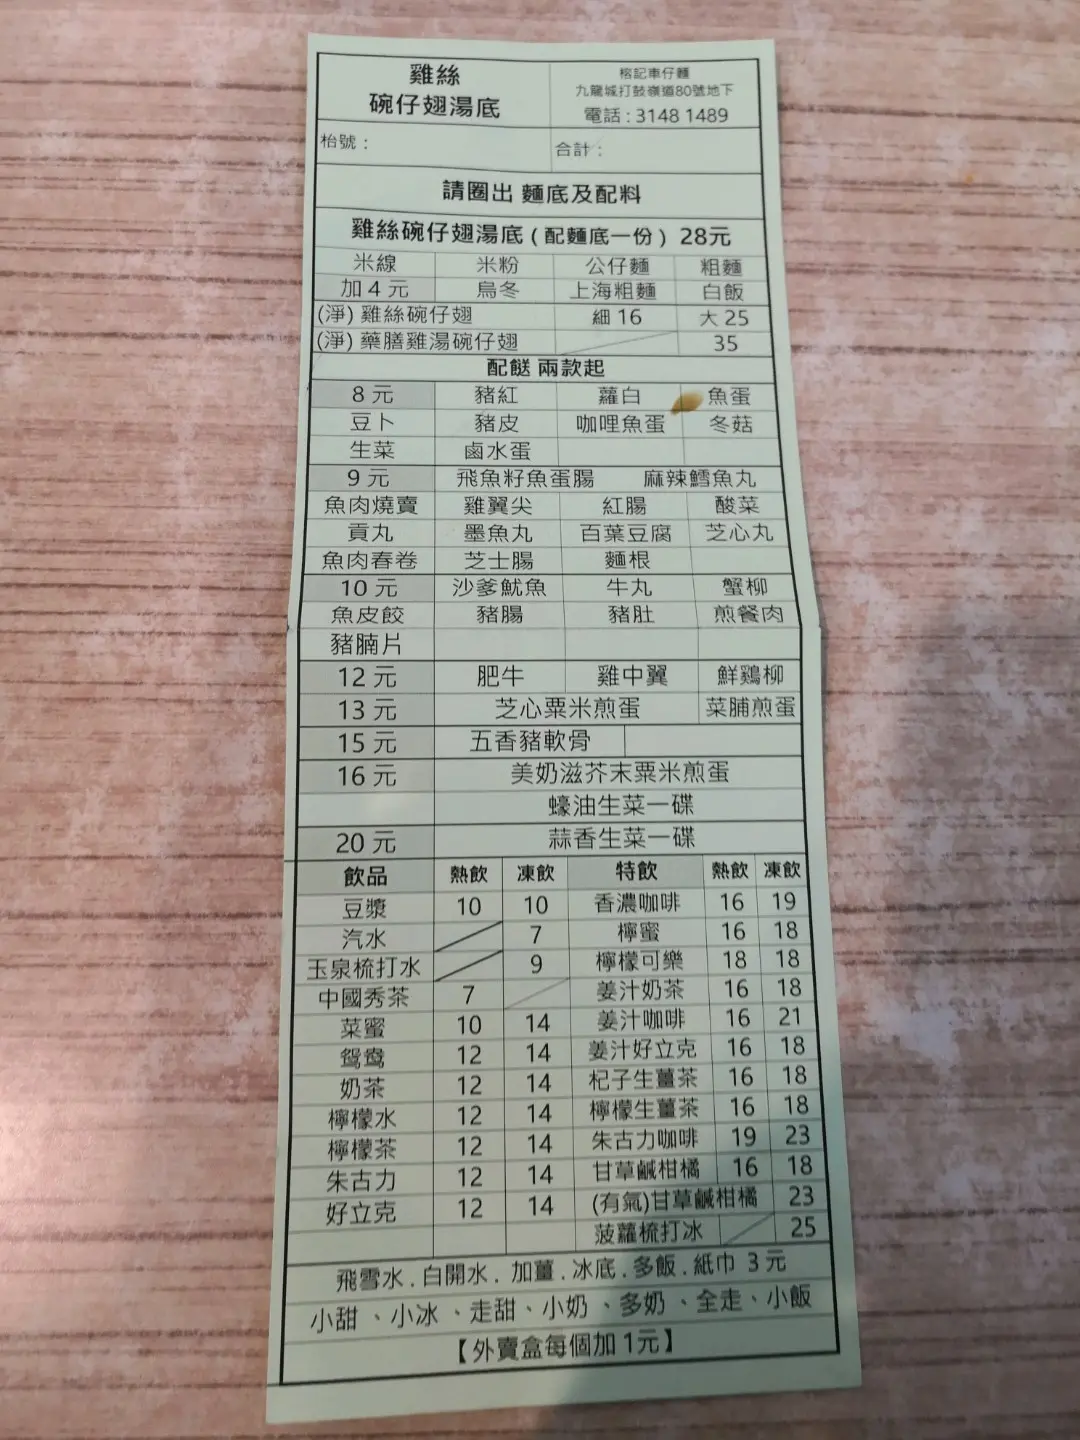 雞絲
碗仔翅湯底
榕記車仔麵
九龍城打鼓嶺道80號地下
電話 : 3148 1489
枱號 :
合計 :
請圈出 麵底及配料
雞絲碗仔翅湯底 ( 配麵底一份 ) 28元
米線 米粉 公仔麵 粗麵
加 4 元 烏冬 上海粗麵 白飯
(淨) 雞絲碗仔翅 細 16 大 25
(淨) 藥膳雞湯碗仔翅 35
配餸 兩款起
8 元 豬紅 蘿白 魚蛋
豆卜 豬皮 咖哩魚蛋 冬菇
生菜 鹵水蛋
9 元 飛魚籽魚蛋腸 麻辣鱈魚丸
魚肉燒賣 雞翼尖 紅腸 酸菜
貢丸 墨魚丸 百葉豆腐 芝心丸
魚肉春卷 芝士腸 麵根
10 元 沙爹魷魚 牛丸 蟹柳
魚皮餃 豬腸 豬肚 煎餐肉
豬腩片
12 元 肥牛 雞中翼 鮮鷄柳
13 元 芝心粟米煎蛋 菜脯煎蛋
15 元 五香豬軟骨
16 元 美奶滋芥末粟米煎蛋
蠔油生菜一碟
20 元 蒜香生菜一碟
飲品 熱飲 凍飲 特飲 熱飲 凍飲
豆漿 10 10 香濃咖啡 16 19
汽水 7 檸蜜 16 18
玉泉梳打水 9 檸檬可樂 18 18
中國秀茶 7 姜汁奶茶 16 18
菜蜜 10 14 姜汁咖啡 16 21
鴛鴦 12 14 姜汁好立克 16 18
奶茶 12 14 杞子生薑茶 16 18
檸檬水 12 14 檸檬生薑茶 16 18
檸檬茶 12 14 朱古力咖啡 19 23
朱古力 12 14 甘草鹹柑橘 16 18
好立克 12 14 (有氣)甘草鹹柑橘 23
菠蘿梳打冰 25
飛雪水 . 白開水 . 加薑 . 冰底 . 多飯 . 紙巾 3 元
小甜 、小冰 、走甜、小奶 、多奶 、全走、小飯
【外賣盒每個加 1元】